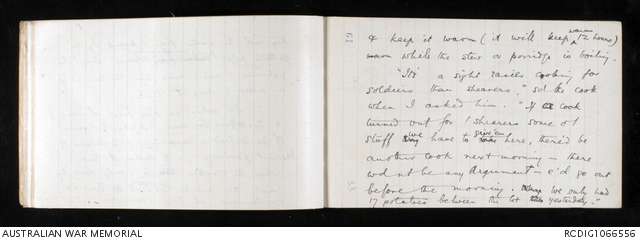 19
& keep it warm (it will keep warm 12 hours)
while the stew or porridge is boiling.
"It's a sight easier cooking for
soldiers than shearers." sd the cook
when I asked him. "If a cook
turned out for shearers some of
stuff we have to give 'em here, there'd be
another cook next morning – there
wd nt be any argument – e'd go out
before the morning. We only had
17 potatoes between the lot yesterday."
AUSTRALIAN WAR MEMORIAL
RCDIG1066556